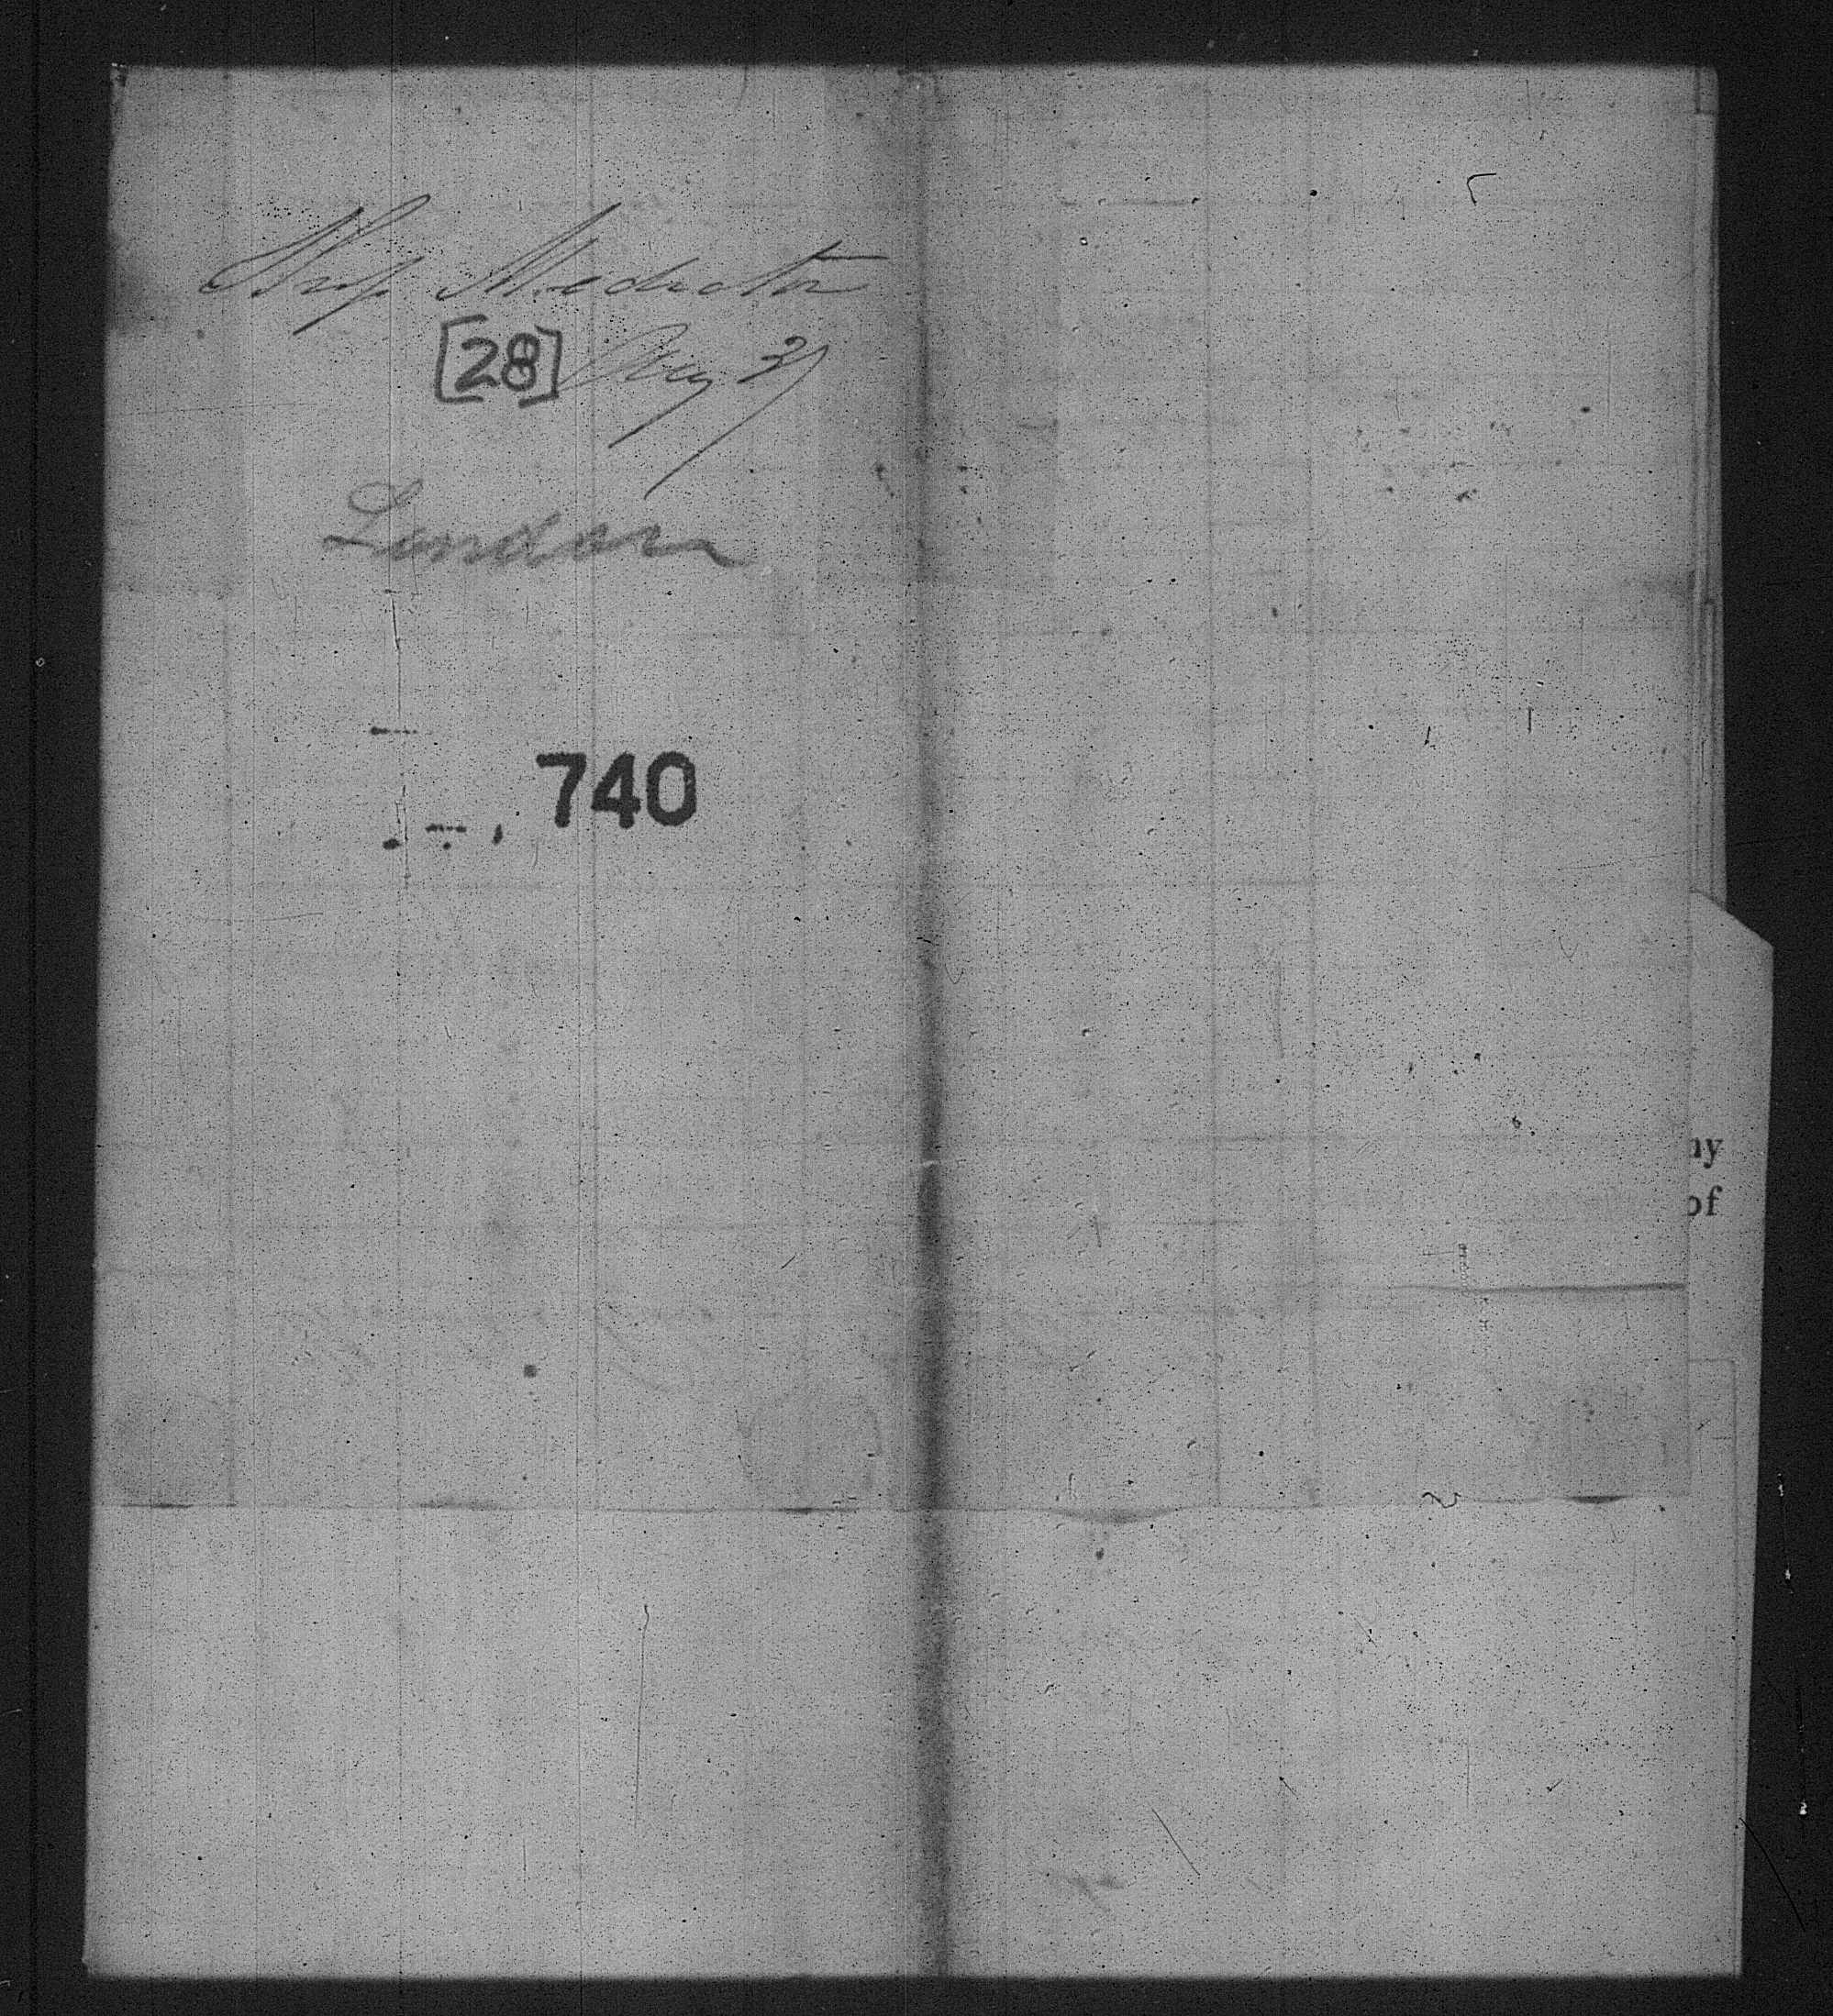 Ship Mediator
[28] Aug 31
London
740
ny
of